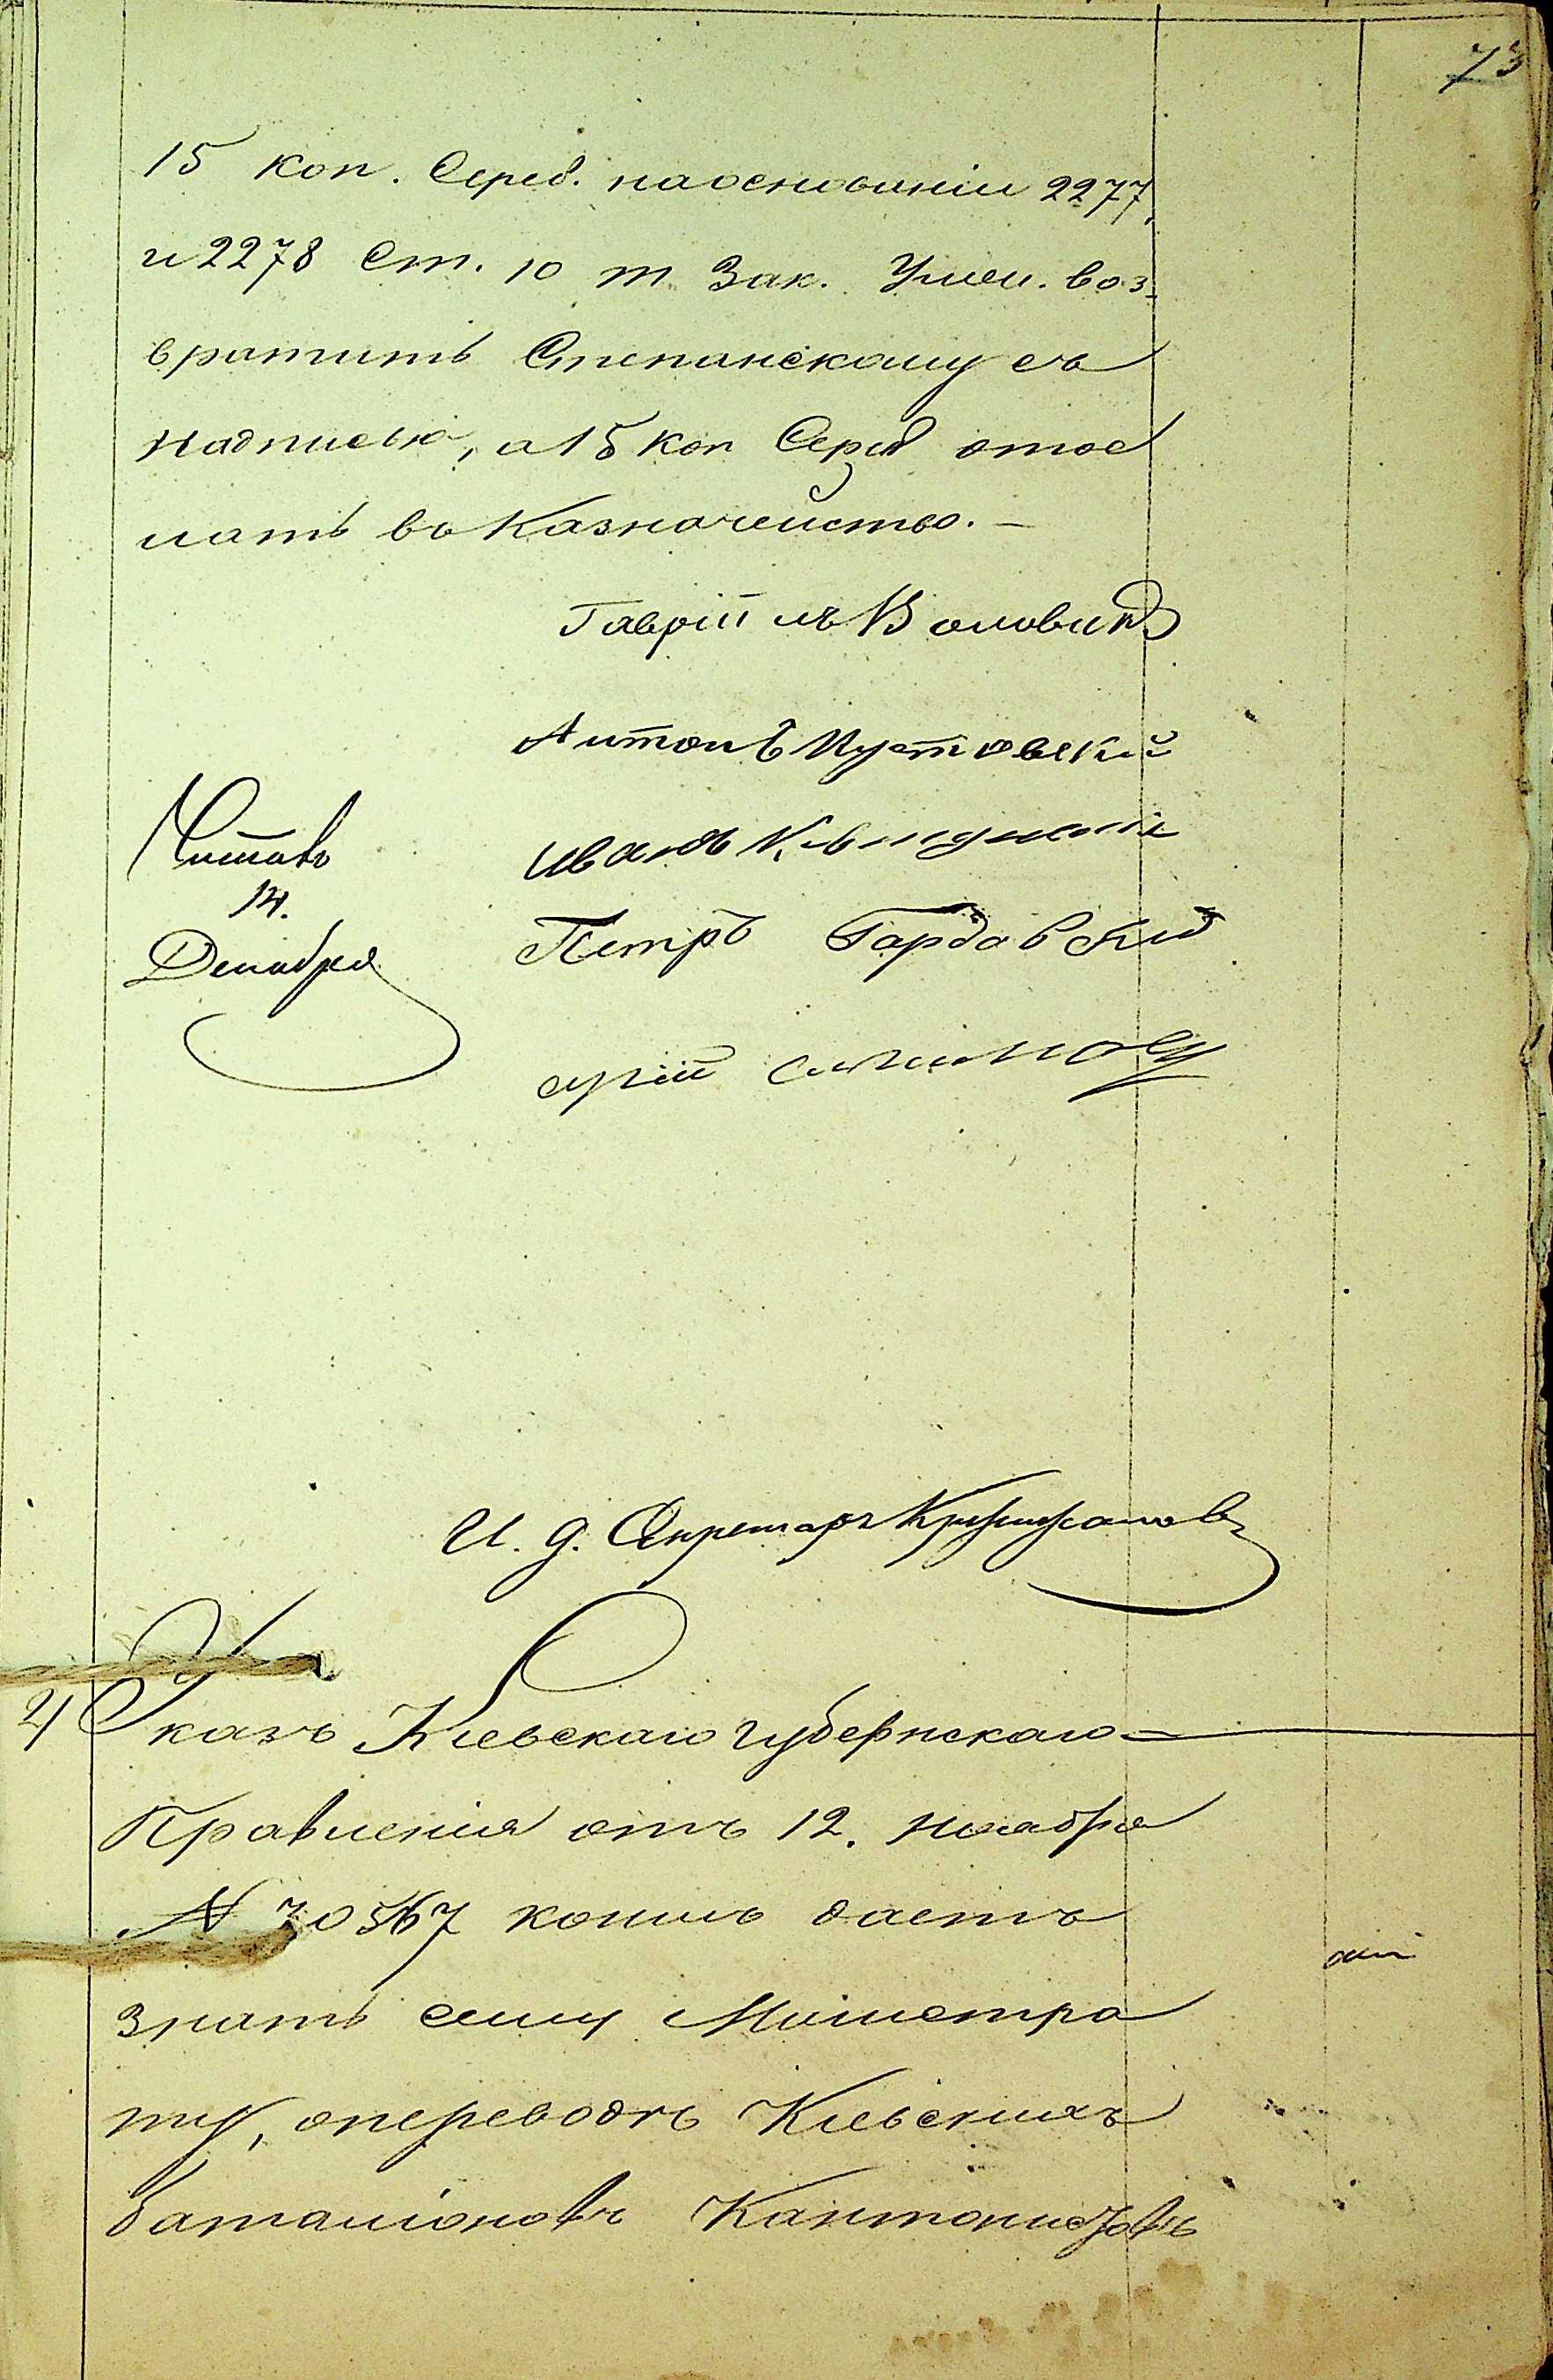 73
15 коп. Сереб. на основаніи 2277,
и 2278 Ст. 10 т Зак. Угол. воз-
вратить Степанскому съ
надписью, а 15 коп Сереб отос
лать въ Казначейство. —
Гавріилъ Воловикъ
Антонъ Пустовскій
Читалъ
14.
Декабря
Иванъ
Петръ Гардавскій
И. д. Секретаря Крыжановъ
2) Указъ Кіевскаго Губернскаго =
Правленія отъ 12. Ноября
№ 70567 коимъ даетъ
знать сему Магистра
ту, о переводѣ Кіевскихъ
баталіоновъ Кантонистовъ